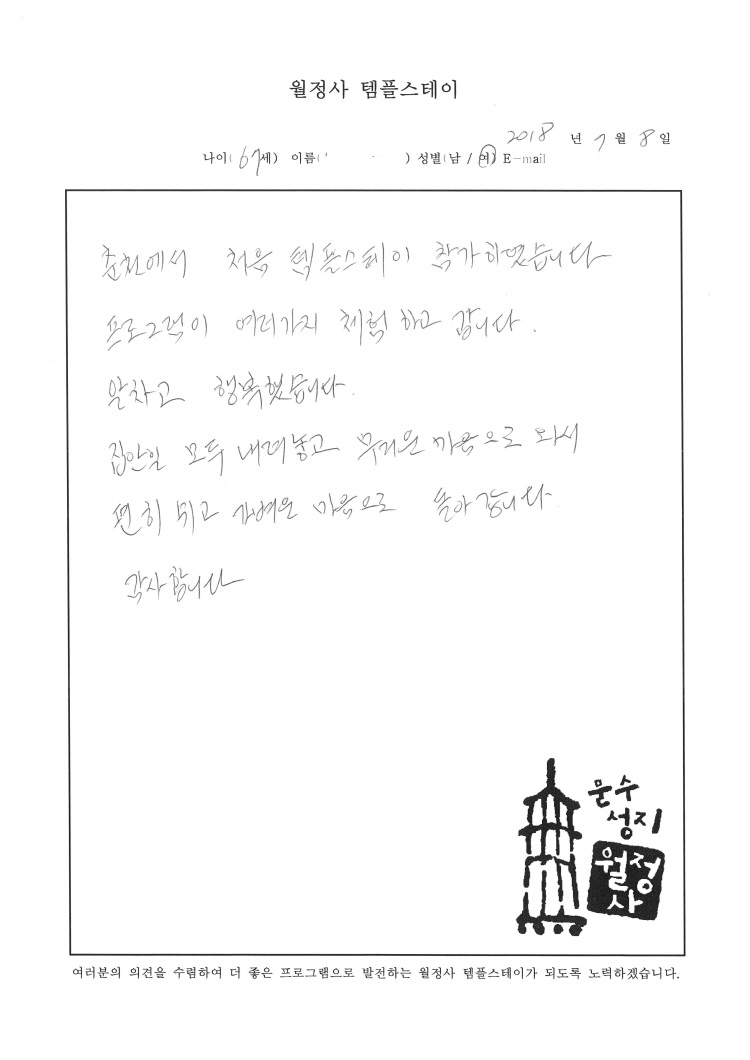 월정사 템플스테이
2018 년 7 월 8 일
나이( 67세) 이름( ) 성별(남 / 여) E-mail
춘천에서 처음 템플스테이 참가하였습니다
프로그램이 여러가지 체험 하고 갑니다.
알차고 행복했습니다.
집안일 모두 내려놓고 무거운 마음으로 와서
편히 쉬고 가벼운 마음으로 돌아 갑니다
감사합니다
문수
성지
월정
사
여러분의 의견을 수렴하여 더 좋은 프로그램으로 발전하는 월정사 템플스테이가 되도록 노력하겠습니다.